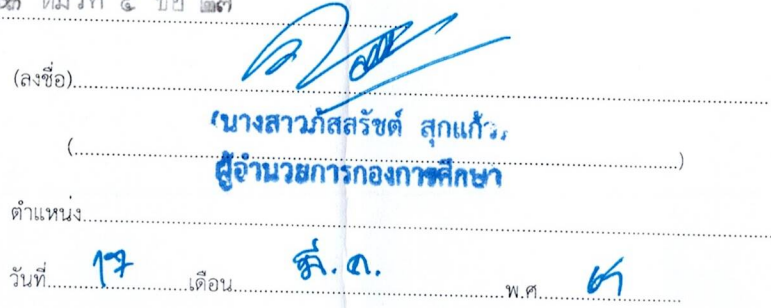 หมวดที่ ๔ ข้อ ๒๗
(ลงชื่อ)
(นางสาวภัสสรัชต์ สุกแก้ว)
(....................)
ผู้อำนวยการกองการศึกษา
ตำแหน่ง
วันที่ 17 เดือน มี.ค. พ.ศ.